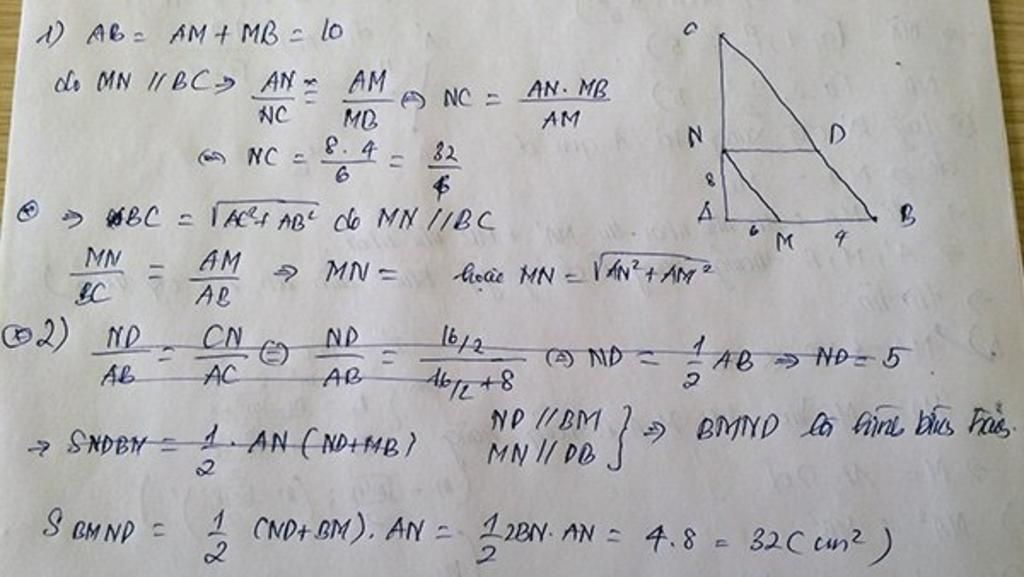 1) AB = AM + MB = 10
do MN // BC ⇒ AN/NC = AM/MB ⇔ NC = AN . MB/AM
⇔ NC = 8 . 4/6 = 32/6
⇒ BC = √(AC² + AB²) do MN // BC
MN/BC = AM/AB ⇒ MN = hoặc MN = √(AN² + AM²)
2) ND/AB = CN/AC ⇔ ND/AB = (16/2)/(16/2 + 8) ⇔ ND = 1/2 AB ⇒ ND = 5
⇒ SNDBM = 1/2 . AN (ND + MB)
ND // BM
MN // DB } ⇒ BMND là hình bình hành.
S BMND = 1/2 (ND + BM) . AN = 1/2 2BN . AN = 4.8 = 32 (cm²)
C
N
D
8
A
6
M
4
B